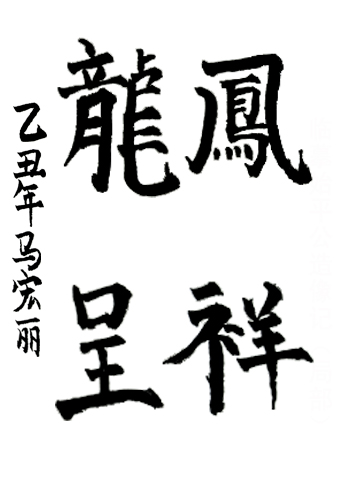 龍鳳
呈祥
乙丑年马宏丽